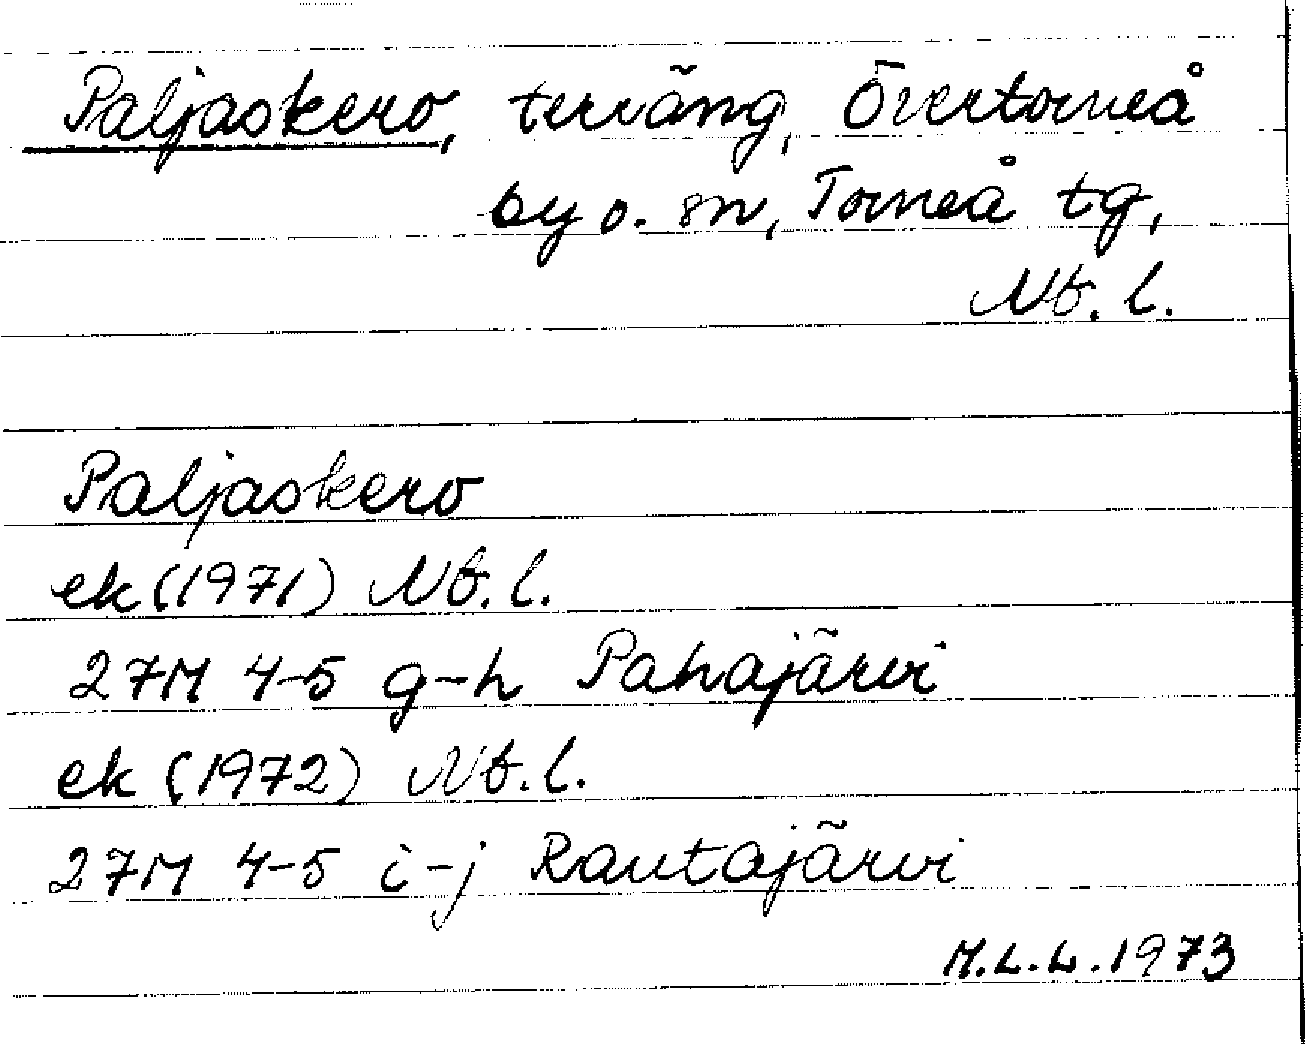 Paljaskero, terräng, Övertorneå
by o. sn, Torneå tg,
Nb. l.
Paljaskero
ek (1971) Nb. l.
27M 4-5 g-h Pahajärvi
ek (1972) Nb. l.
27M 4-5 i-j Rautajärvi
M.L.L. 1973